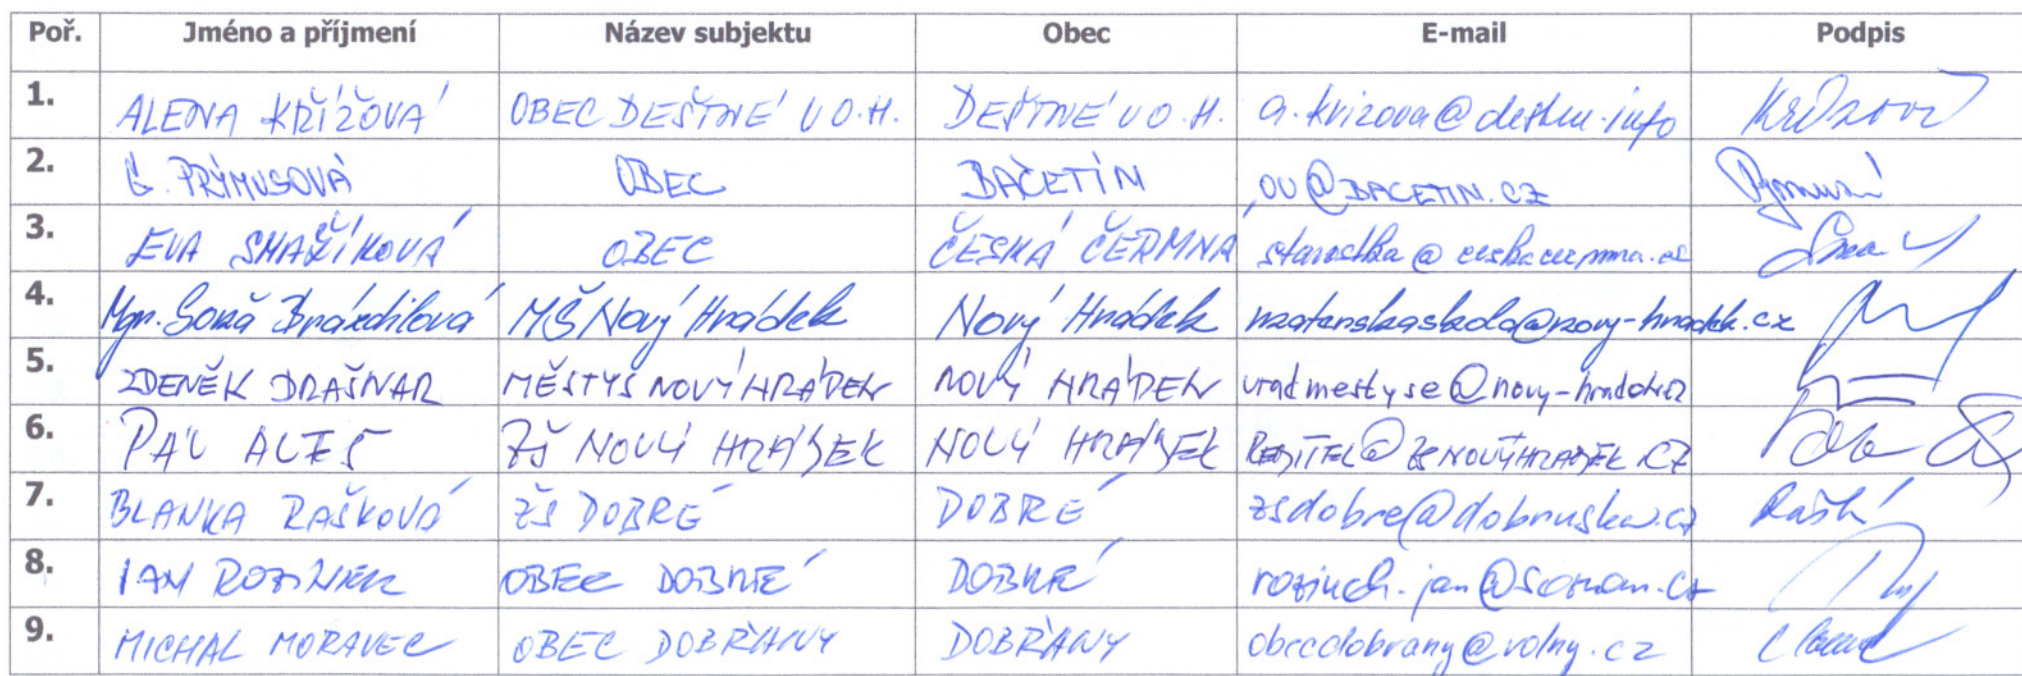 Poř. Jméno a příjmení Název subjektu Obec E-mail Podpis
1. ALENA KŘÍŽOVÁ OBEC DEŠTNÉ V O.H. DEŠTNÉ V O.H. a.krizova@destne.info
2. PRÝMUSOVÁ OBEC BAČETÍN OU@BACETIN.CZ
3. EVA SMAŽÍKOVÁ OBEC ČESKÁ ČERMNÁ starostka@ceskacermna.cz
4. Mgr. Soňa Brázdilová MŠ Nový Hrádek Nový Hrádek materskaskola@novy-hradek.cz
5. ZDENĚK DRAŠNAR MĚSTYS NOVÝ HRÁDEK NOVÝ HRÁDEK uradmestyse@novy-hradek.cz
6. ZŠ NOVÝ HRÁDEK NOVÝ HRÁDEK REDITEL@ZSNOVÝHRADEK.CZ
7. BLANKA RAŠKOVÁ ZŠ DOBRÉ DOBRÉ zsdobre@dobruska.cz
8. JAN OBEC DOBRÉ DOBRÉ
9. MICHAL MORAVEC OBEC DOBŘANY DOBŘANY obecdobrany@volny.cz